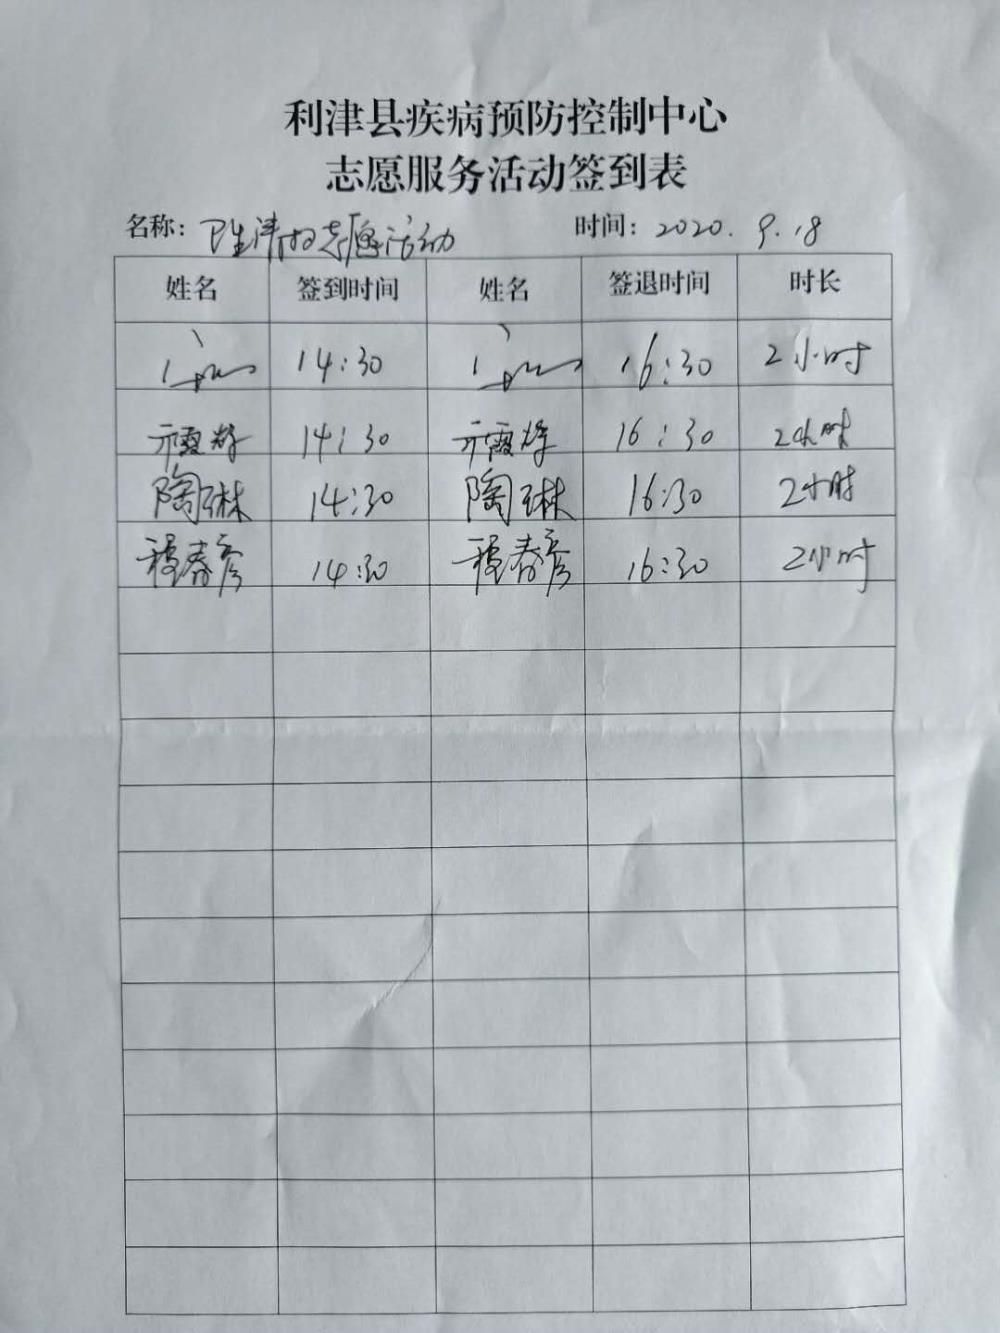 利津县疾病预防控制中心
志愿服务活动签到表
名称：卫生清扫志愿活动 时间：2020.9.18
姓名 签到时间 姓名 签退时间 时长
14:30 16:30 2小时
14:30 16:30 2小时
陶琳 14:30 陶琳 16:30 2小时
春彦 14:30 春彦 16:30 2小时